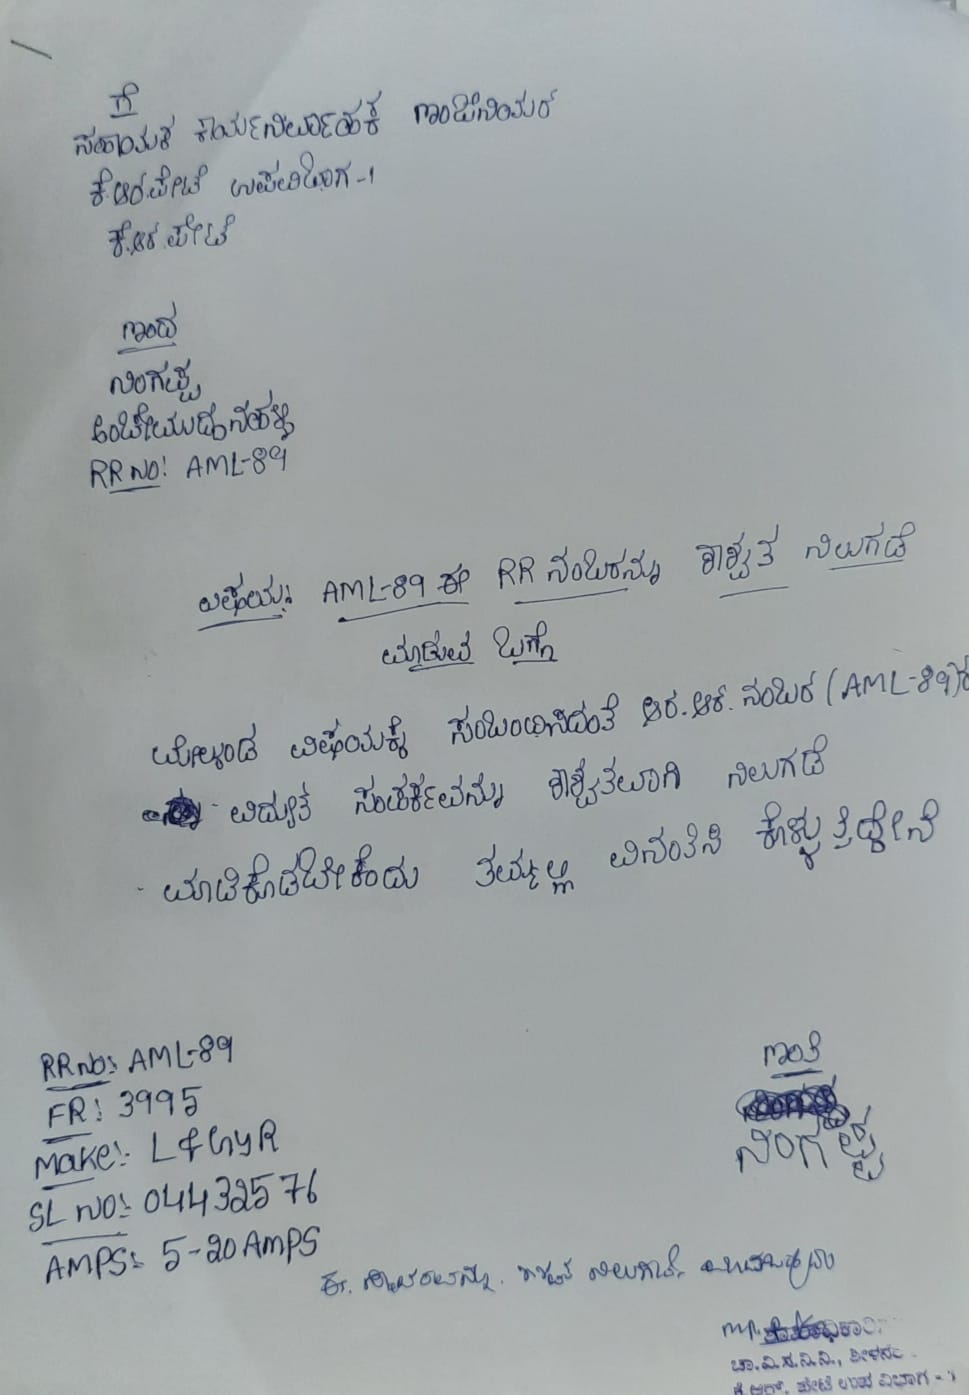 ಗೆ
ಸಹಾಯಕ ಕಾರ್ಯನಿರ್ವಾಹಕ ಇಂಜಿನಿಯರ್
ಕೆ.ಆರ್.ಪೇಟೆ ಉಪವಿಭಾಗ-1
ಕೆ.ಆರ್.ಪೇಟೆ
ಇಂದ
ನಿಂಗಪ್ಪ
RR NO: AML-89
ವಿಷಯ: AML-89 ಈ RR ನಂಬರನ್ನು ಶಾಶ್ವತ ನಿಲುಗಡೆ
ಮಾಡುವ ಬಗ್ಗೆ
ಮೇಲ್ಕಂಡ ವಿಷಯಕ್ಕೆ ಸಂಬಂಧಿಸಿದಂತೆ ಆರ್.ಆರ್.ನಂಬರ (AML-89)ರ
ವಿದ್ಯುತ್ ಸಂಪರ್ಕವನ್ನು ಶಾಶ್ವತವಾಗಿ ನಿಲುಗಡೆ
ಮಾಡಿಕೊಡಬೇಕೆಂದು ತಮ್ಮಲ್ಲಿ ವಿನಂತಿಸಿ ಕೊಳ್ಳುತ್ತಿದ್ದೇನೆ
RR NO: AML-89
FR: 3995
Make: L&GyR
SL NO: 04432576
AMPS: 5-20 AMPS
ಇಂತಿ
ನಿಂಗಪ್ಪ
ಈ ಸ್ಥಾವರವನ್ನು ಶಾಶ್ವತ ನಿಲುಗಡೆ
ಚಾ.ವಿ.ಸ.ನಿ.ನಿ.,
ಕೆ.ಆರ್. ಪೇಟೆ ಉಪ ವಿಭಾಗ - 1